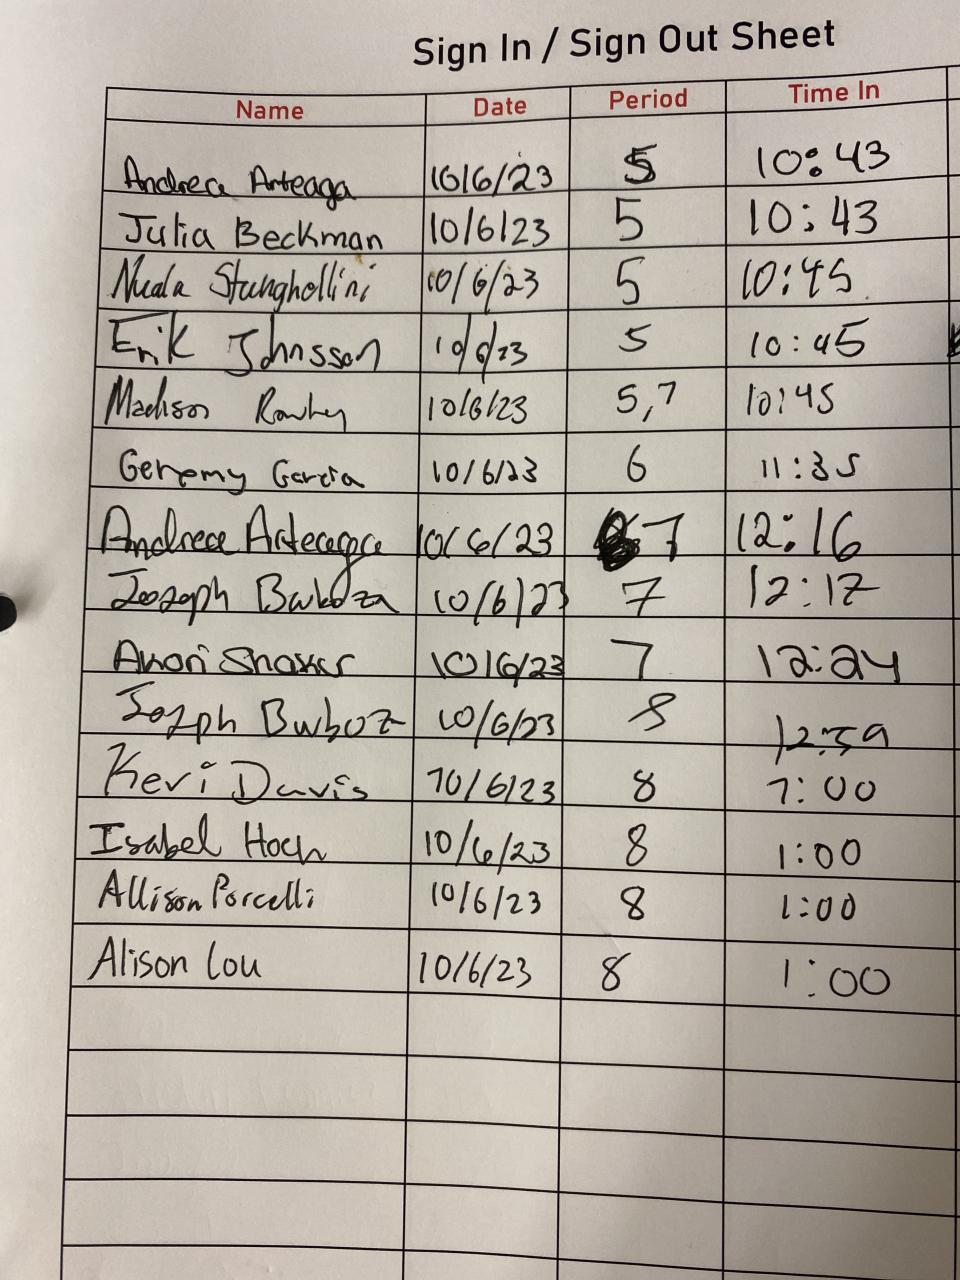 Sign In / Sign Out Sheet
Name Date Period Time In
Andrea Arteaga 10/6/23 5 10:43
Julia Beckman 10/6/23 5 10:43
Nuala 10/6/23 5 10:45
Erik Johnsson 10/6/23 5 10:45
Madison 10/6/23 5,7 10:45
Geremy Garcia 10/6/23 6 11:35
Andrea Arteaga 10/6/23 7 12:16
Joseph 10/6/23 7 12:17
10/6/23 7 12:24
Joseph 10/6/23 8 12:59
Keri Davis 10/6/23 8 1:00
Isabel Hoch 10/6/23 8 1:00
Allison Porcelli 10/6/23 8 1:00
Alison Lou 10/6/23 8 1:00